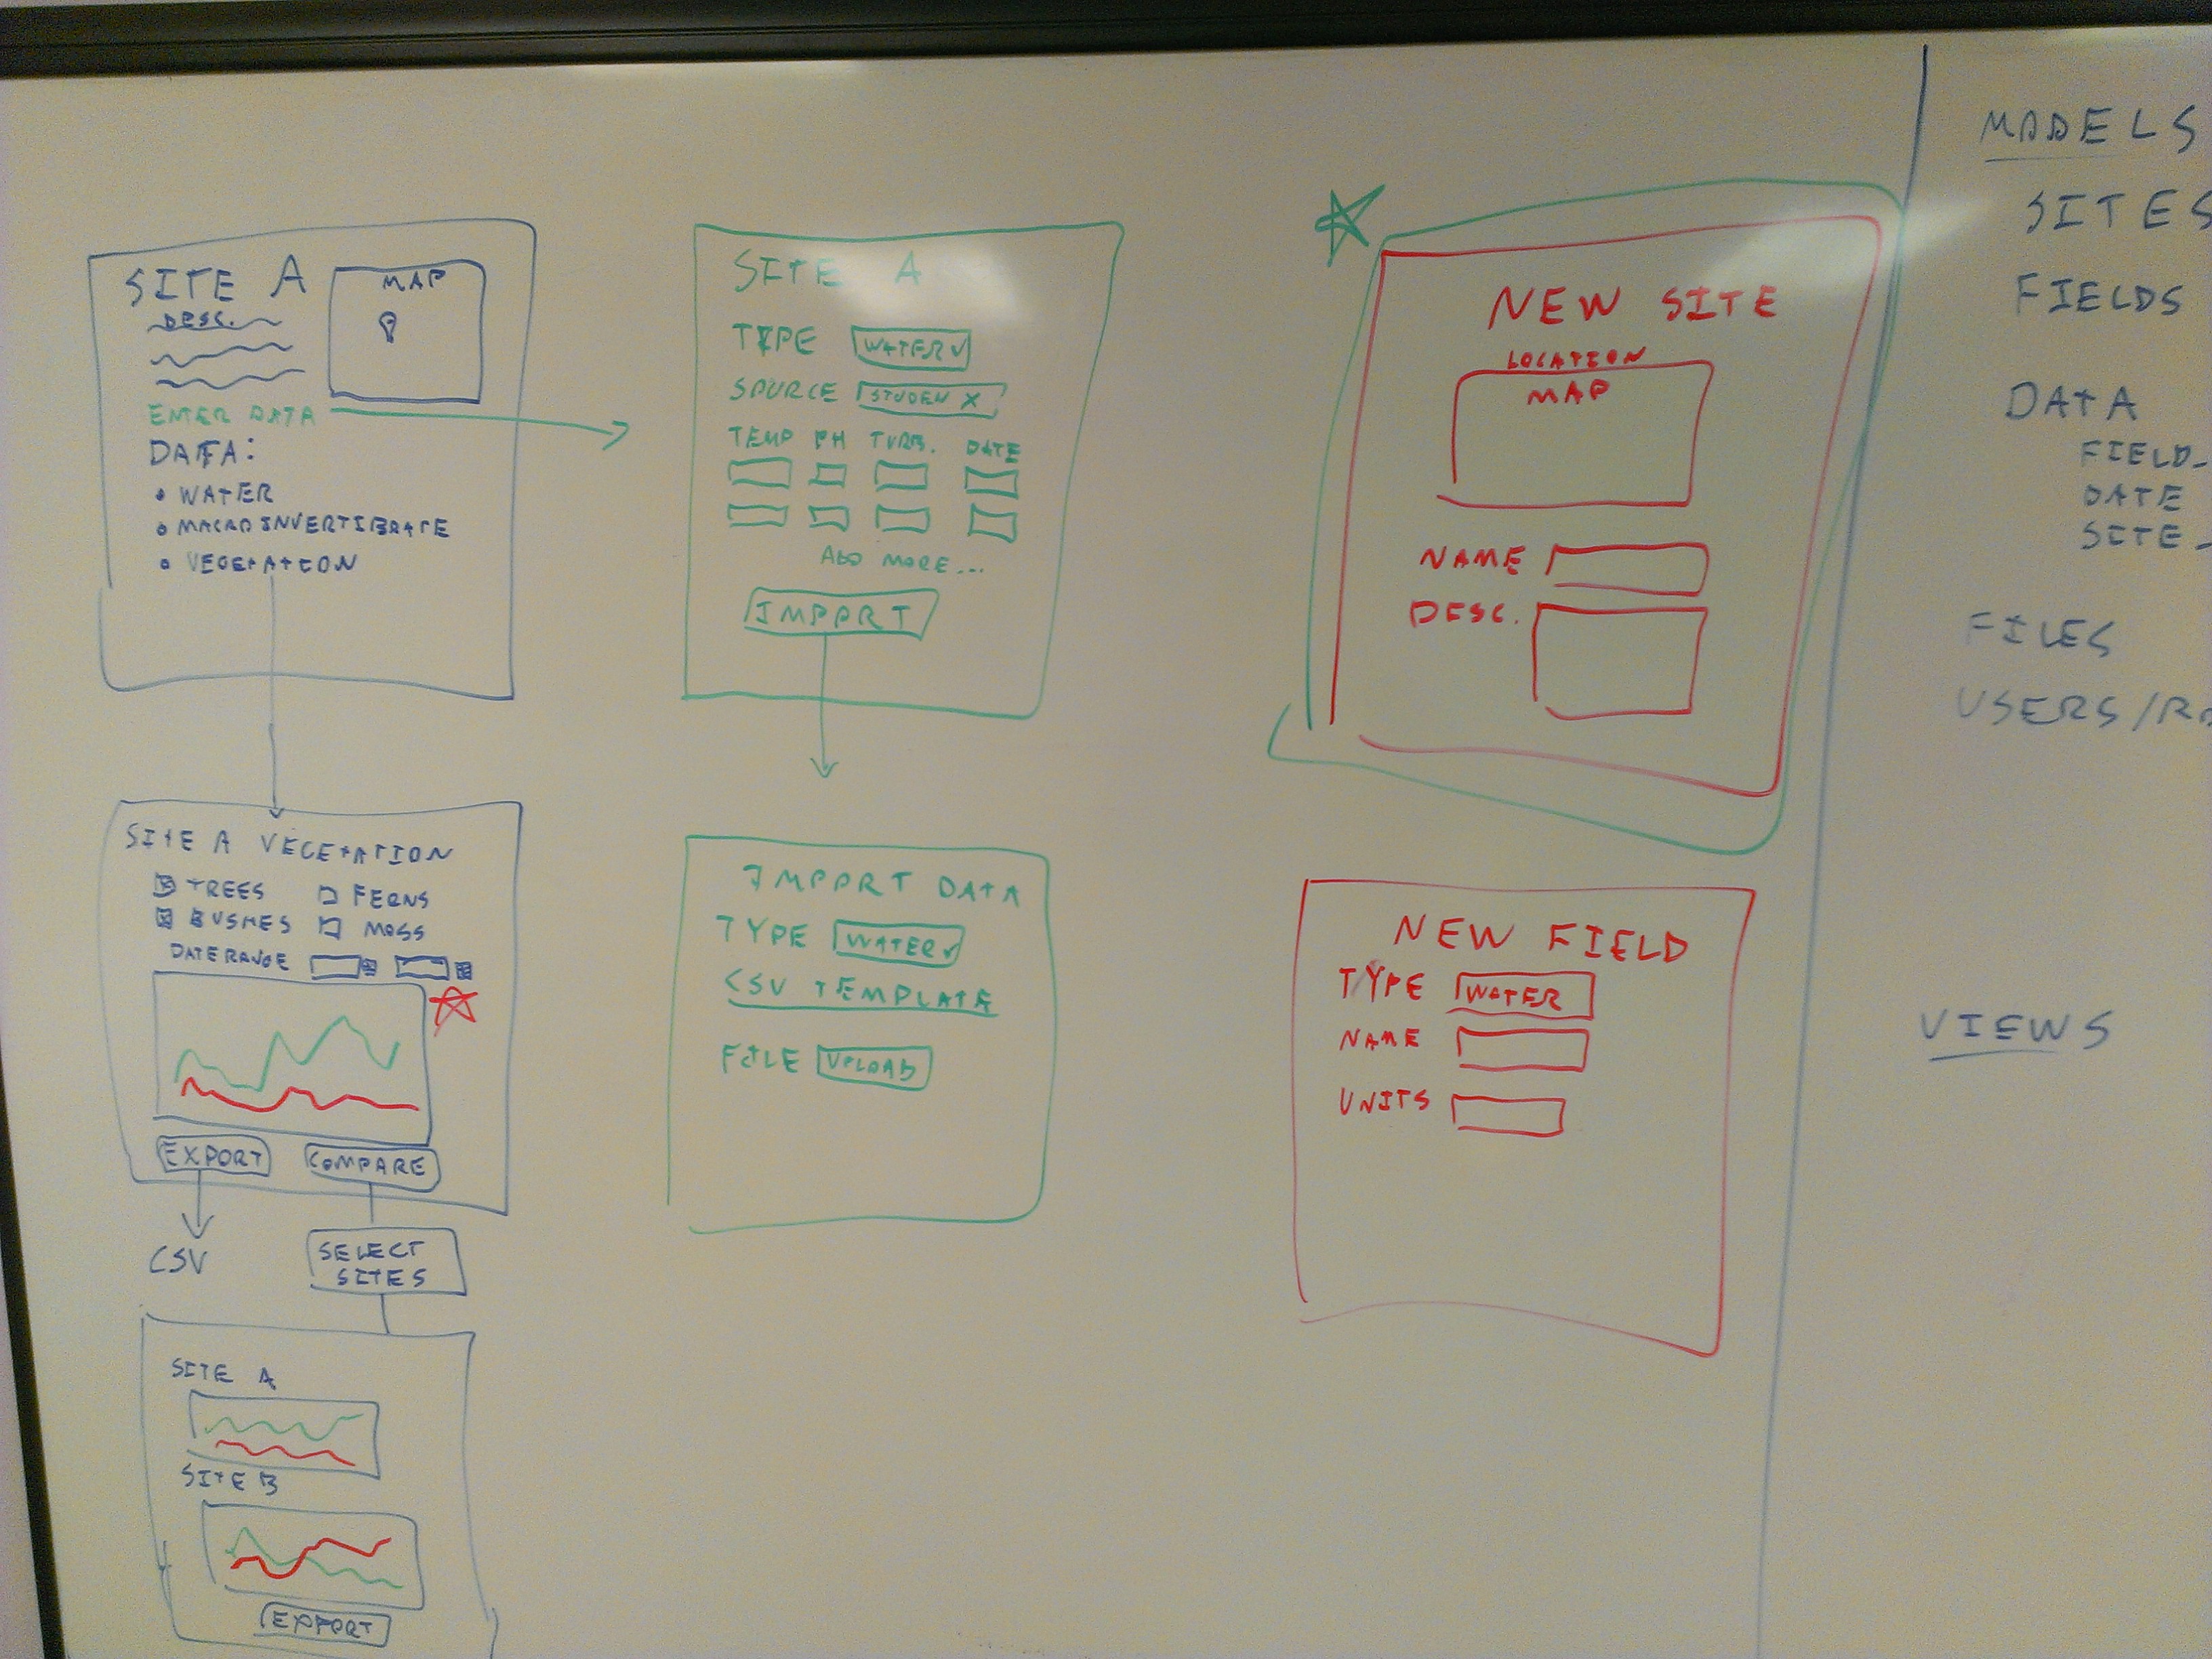 SITE A
MAP
DESC.
ENTER DATA
DATA:
• WATER
• MACROINVERTIBRATE
• VEGETATION
SITE A VEGETATION
TREES FERNS
BUSHES MOSS
DATE RANGE
EXPORT COMPARE
CSV
SELECT
SITES
SITE A
SITE B
EXPORT
SITE A
TYPE WATER
SOURCE STUDEN
TEMP PH TURB. DATE
ADD MORE...
IMPORT
IMPORT DATA
TYPE WATER
CSV TEMPLATE
FILE UPLOAD
NEW SITE
LOCATION
MAP
NAME
DESC.
NEW FIELD
TYPE WATER
NAME
UNITS
MODELS
SITES
FIELDS
DATA
FIELD_
DATE
SITE_
FILES
USERS/
VIEWS